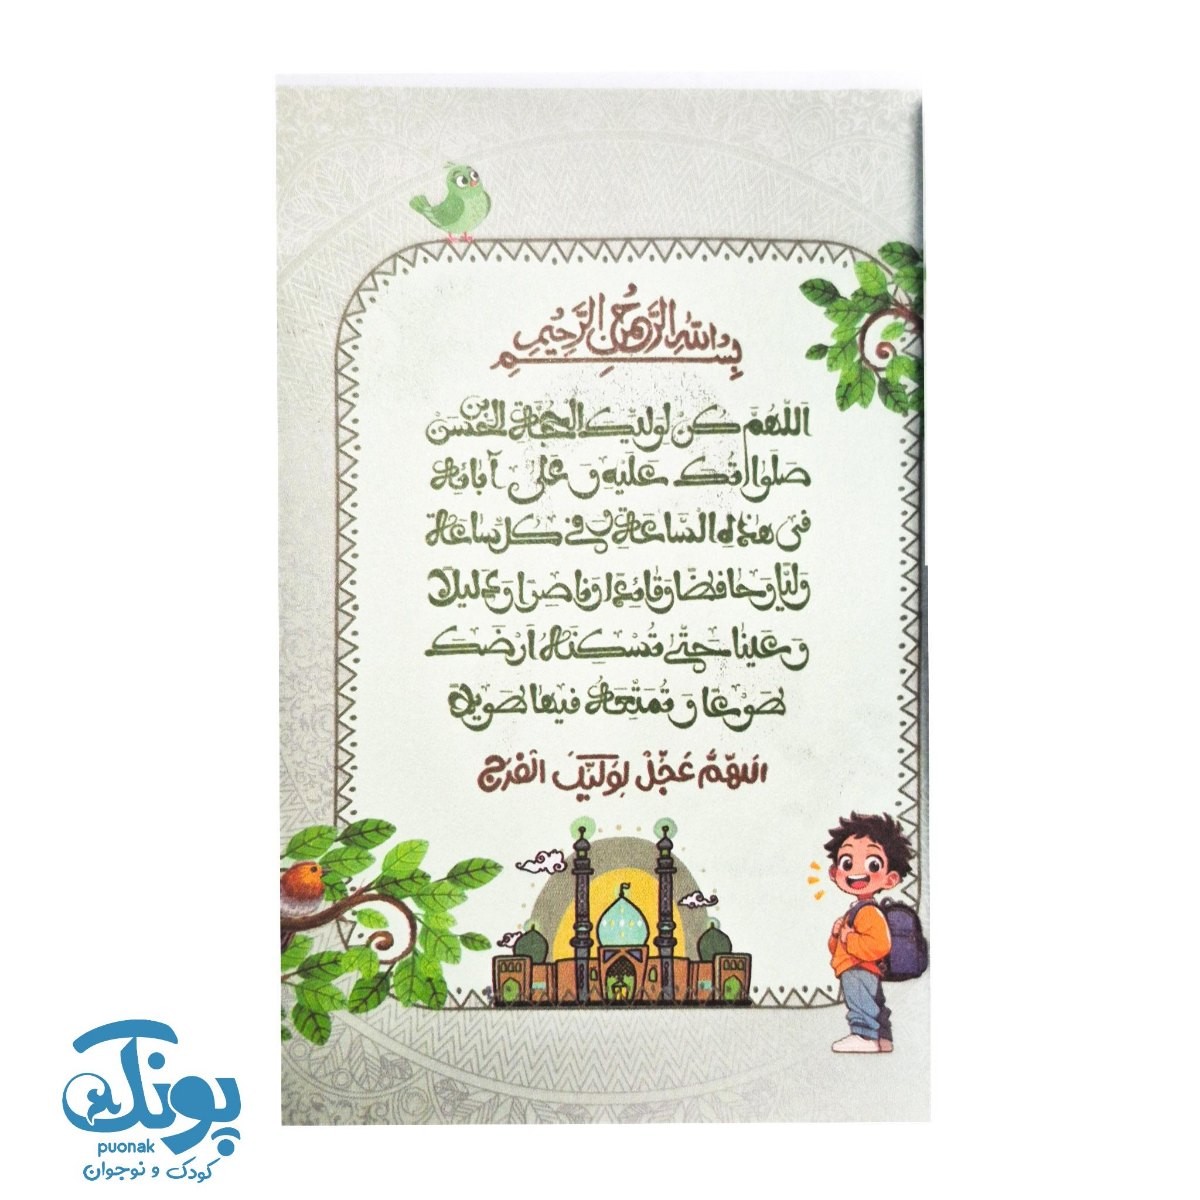 بِسْمِ اللهِ الرَّحْمنِ الرَّحِیمِ
اَللّهُمَّ کُنْ لِوَلِیِّکَ الْحُجَّةِ بْنِ الْحَسَنِ
صَلَواتُکَ عَلَیهِ وَ عَلی آبائِهِ
فی هذِهِ السّاعَةِ وَ فی کُلِّ ساعَة
وَلیّا وَ حافِظا وَ قائِدا وَ ناصِرا وَ دَلیلا
وَ عَینا حَتّی تُسْکِنَهُ اَرْضَکَ
طَوْعا وَ تُمَتِّعَهُ فیها طَویلا
اَللّهُمَّ عَجِّلْ لِوَلِیِّکَ الْفَرَج
پونک
puonak
کودک و نوجوان